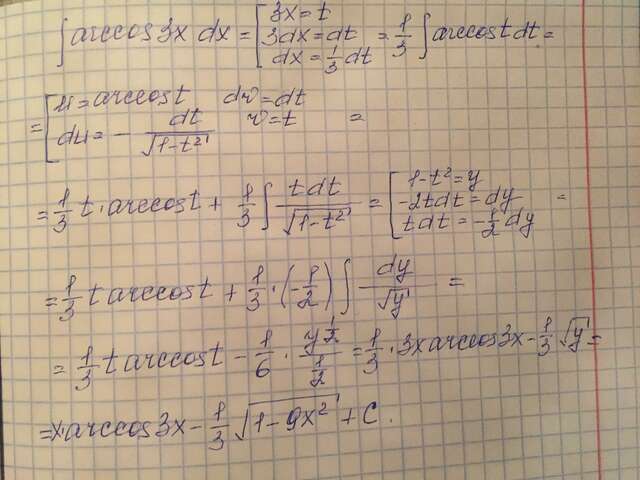 ∫ arccos3x dx = [3x = t
3dx = dt
dx = 1/3 dt = 1/3 ∫ arccost dt =
= [u = arccost dv = dt
du = - dt/√(1-t²) v = t =
= 1/3 t · arccost + 1/3 ∫ tdt/√(1-t²) = [1-t² = y
-2tdt = dy
tdt = -1/2 dy =
= 1/3 t arccost + 1/3 · (-1/2) ∫ dy/√y =
= 1/3 t arccost - 1/6 · y^(1/2)/(1/2) = 1/3 · 3x arccos3x - 1/3 √y =
= x · arccos3x - 1/3 √(1-9x²) + C.